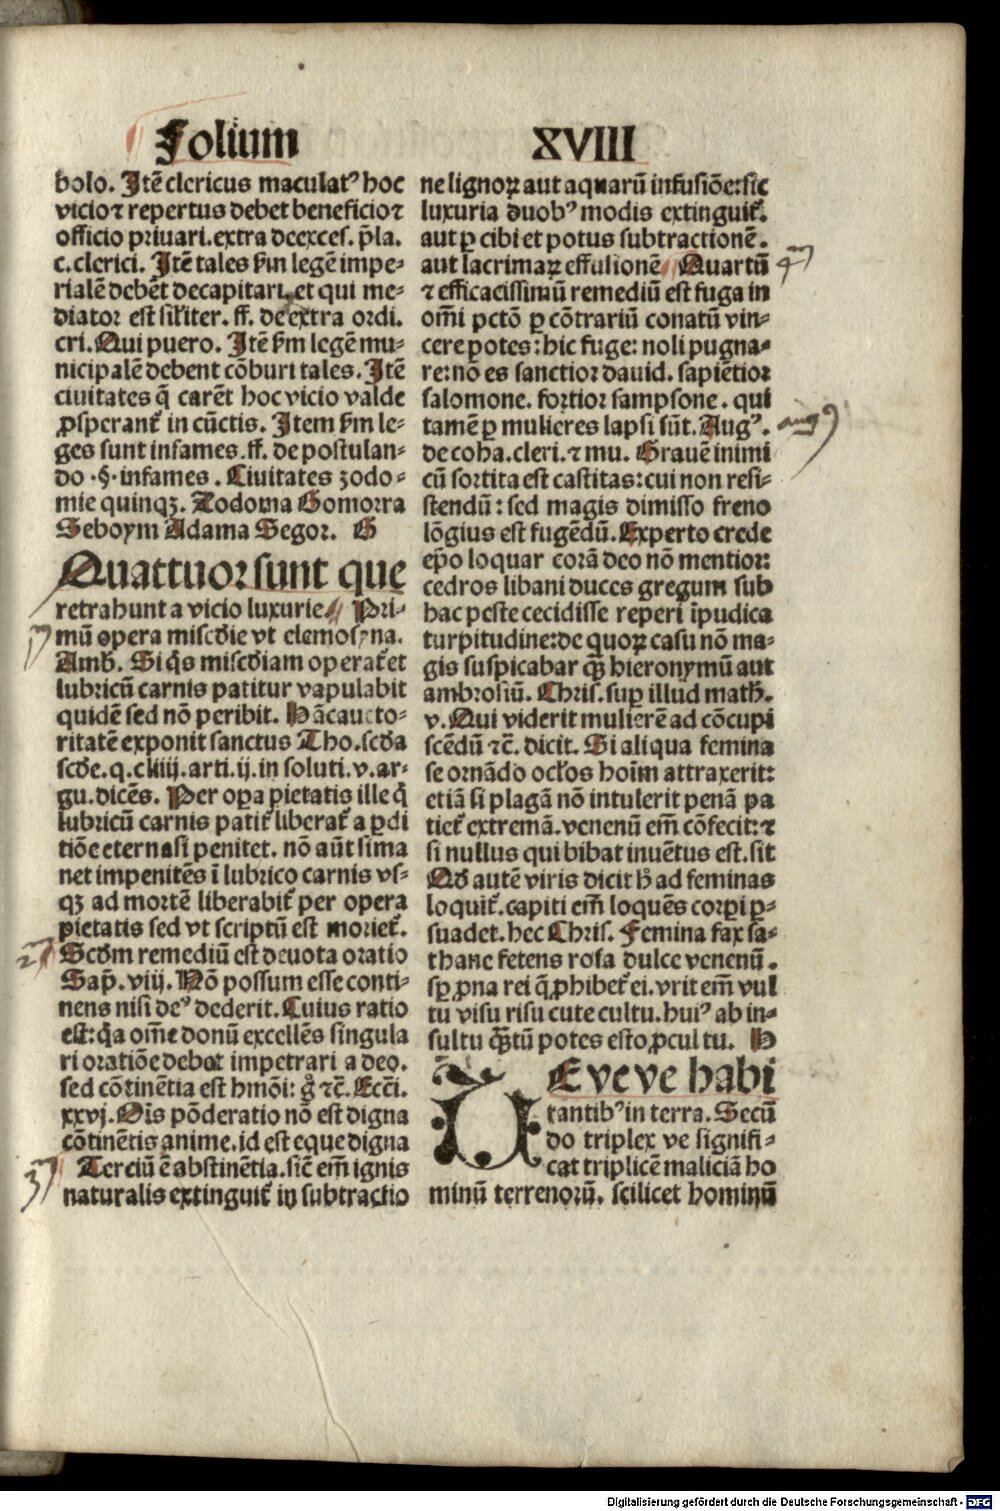 Folium XVIII
bolo. Itē clericus maculatꝰ hoc
vicio ⁊ repertus debet beneficio ⁊
officio priuari. extra de exces. p̄la.
c. clerici. Itē tales ẜm legē impe-
rialē debēt decapitari, et qui me-
diator est sil'iter. ff. de extra ordi.
cri. Qui puero. Itē ẜm legē mu-
nicipalē debent cōburi tales. Itē
ciuitates q̄ carēt hoc vicio valde
ꝓsperant' in cūctis. Item ẜm le-
ges sunt infames. ff. de postulan-
do .§. infames. Ciuitates zodo-
mie quinqꝫ. Zodoma Gomorra
Seboym Adama Segor. G
Quattuor sunt que
retrahunt a vicio luxurie Pri-
mū opera miscd'ie vt elemosyna.
Amb. Si q̄s miscd'iam operat' et
lubricū carnis patitur vapulabit
quidē sed nō peribit. Hāc aucto-
ritatē exponit sanctus Tho. scd'a
scd'e. q. cliiij. arti. ij. in soluti. v. ar-
gu. dicēs. Per oꝑa pietatis ille q̄
lubricū carnis patit' liberat' a ꝑdi
tiōe eterna si penitet. nō aūt si ma
net impenitēs ī lubrico carnis vs-
qꝫ ad mortē liberabit' per opera
pietatis sed vt scriptū est moriet'.
Scd'm remediū est deuota oratio
Sap̄. viij. Nō possum esse conti-
nens nisi deꝰ dederit. Cuius ratio
est: q̄a om̄e donū excellēs singula
ri oratiōe debet impetrari a deo.
sed cōtinētia est hmōi: g̊ ⁊c̄. Ecc̄i.
xxvj. Ois pōderatio nō est digna
cōtinētis anime. id est eque digna
Terciū ē abstinētia. sic̄ em̄ ignis
naturalis extinguit' in subtractio
ne lignoꝝ aut aquarū infusiōe: sic
luxuria duobꝰ modis extinguit'.
aut ꝑ cibi et potus subtractionē.
aut lacrimaꝝ effusionē Quartū
⁊ efficacissimū remediū est fuga in
om̄i pctō ꝑ cōtrariū conatū vin-
cere potes: hic fuge: noli pugna-
re: nō es sanctior dauid. sapiētior
salomone. fortior sampsone. qui
tamē ꝑ mulieres lapsi sūt. Augꝰ.
de coha. cleri. ⁊ mu. Grauē inimi
cū sortita est castitas: cui non resi-
stendū: sed magis dimisso freno
lōgius est fugēdū. Experto crede
ep̄o loquar corā deo nō mentior:
cedros libani duces gregum sub
hac peste cecidisse reperi īpudica
turpitudine: de quoꝝ casu nō ma-
gis suspicabar qꝫ̄ hieronymū aut
ambrosiū. Chris. suꝑ illud math.
v. Qui viderit mulierē ad cōcupi
scēdū ⁊c̄. dicit. Si aliqua femina
se ornādo ocl'os hoīm attraxerit:
etiā si plagā nō intulerit penā pa
tiet' extremā. venenū em̄ cōfecit: ⁊
si nullus qui bibat inuētus est. sit
Qd' autē viris dicit h' ad feminas
loquit'. capiti em̄ loquēs corꝑi ꝑ-
suadet. hec Chris. Femina fax sa-
thane fetens rosa dulce venenū.
sꝑ ꝓna rei q̄ ꝓhibet' ei. vrit em̄ vul
tu visu risu cute cultu. huiꝰ ab in-
sultu qꝫ̄tū potes esto ꝓcul tu. H
UE ve ve habi
tantibꝰ in terra. Secū
do triplex ve signifi-
cat triplicē maliciā ho
minū terrenorū. scilicet hominū
aug
Digitalisierung gefördert durch die Deutsche Forschungsgemeinschaft - DFG